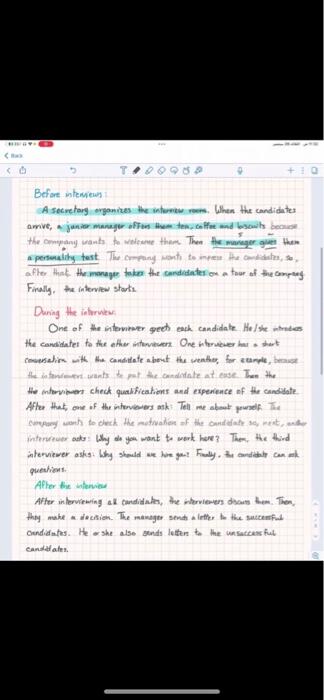 Back
Before interviews:
A secretary organizes the interview room. When the candidates
arrive, a junior manager offers them tea, coffee and biscuits because
the company wants to welcome them. Then the manager gives them
a personality test. The company wants to impress the candidates, so,
after that the manager takes the candidates on a tour of the company.
Finally, the interview starts.
During the interview:
One of the interviewer greets each candidate. He/she introduces
the candidates to the other interviewers. One interviewer has a short
conversation with the candidate about the weather, for example, because
the interviewers wants to put the candidate at ease. Then the
the interviewers check qualifications and experience of the candidate.
After that, one of the interviewers ask: Tell me about yourself. The
company wants to check the motivation of the candidate so, next, another
interviewer asks: Why do you want to work here? Then, the third
interviewer asks: Why should we hire you? Finally, the candidate can ask
questions.
After the interview
After interviewing all candidates, the interviewers discuss them. Then,
they make a decision. The manager sends a letter to the successful
candidates. He or she also sends letters to the unsuccessful
candidates.